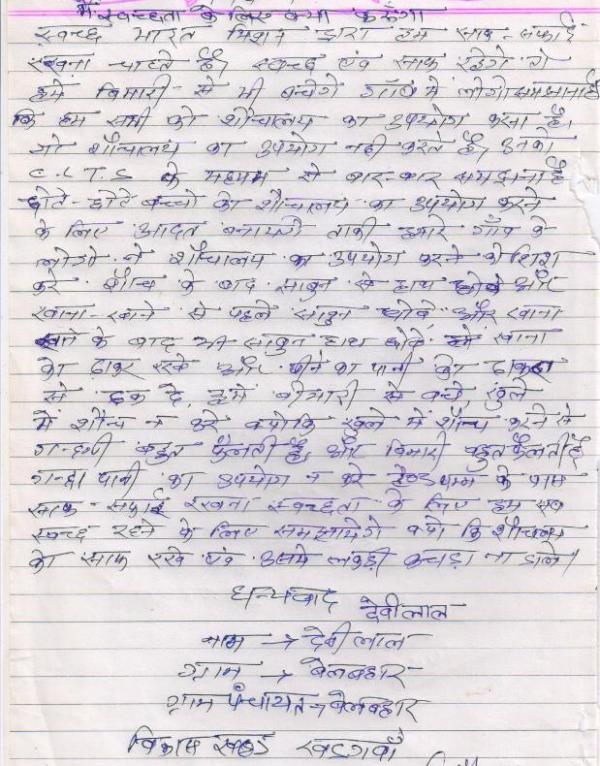 मैं स्वच्छता के लिए क्या करूंगा
स्वच्छ भारत मिशन द्वारा हम साफ-सफाई
रखना चाहते है, स्वच्छ एवं साफ रहेगे तो
हमे बिमारी से भी बचेगे गॉव मे लोगो समझाना है
कि हम सभी को शौचालय का उपयोग करना है,
जो शौचालय का उपयोग नही करते है, उनको
C.L.T.S के मध्यम से बार-बार समझाना है
छोटे-छोटे बच्चो को शौचालय का उपयोग करने
के लिए आदत बनायेगे ताकी हमारे गॉव के
लोगो ने शौचालय का उपयोग करने कोशिश
करे शौच के बाद साबुन से हाथ धोवे और
खाना-खाने से पहले साबुन धोवे और खाना
खाने के बाद भी साबुन हाथ धोवे खाना
को ढाक रखे और पीने का पानी को ढाकन
से ढक दे, हमे बीमारी से बचे, खुले
मे शौच न करे क्योकि खुले मे शौच करने से
गन्दगी बहुत फैलती है, और बिमारी बहुत फैलती है
गन्दा पानी का उपयोग न करे हैण्डपम्प के पास
साफ-सफाई रखना स्वच्छता के लिए हम सब
स्वच्छ रहने के लिए समझायेगे क्यो कि शौचालय
को साफ रखे एवं उसमे लकड़ी कचड़ा ना डाले।
धन्यवाद देवीलाल
नाम → देवी लाल
ग्राम → बेलबहार
ग्राम पंचायत → बेलबहार
विकास खण्ड खडगवाँ